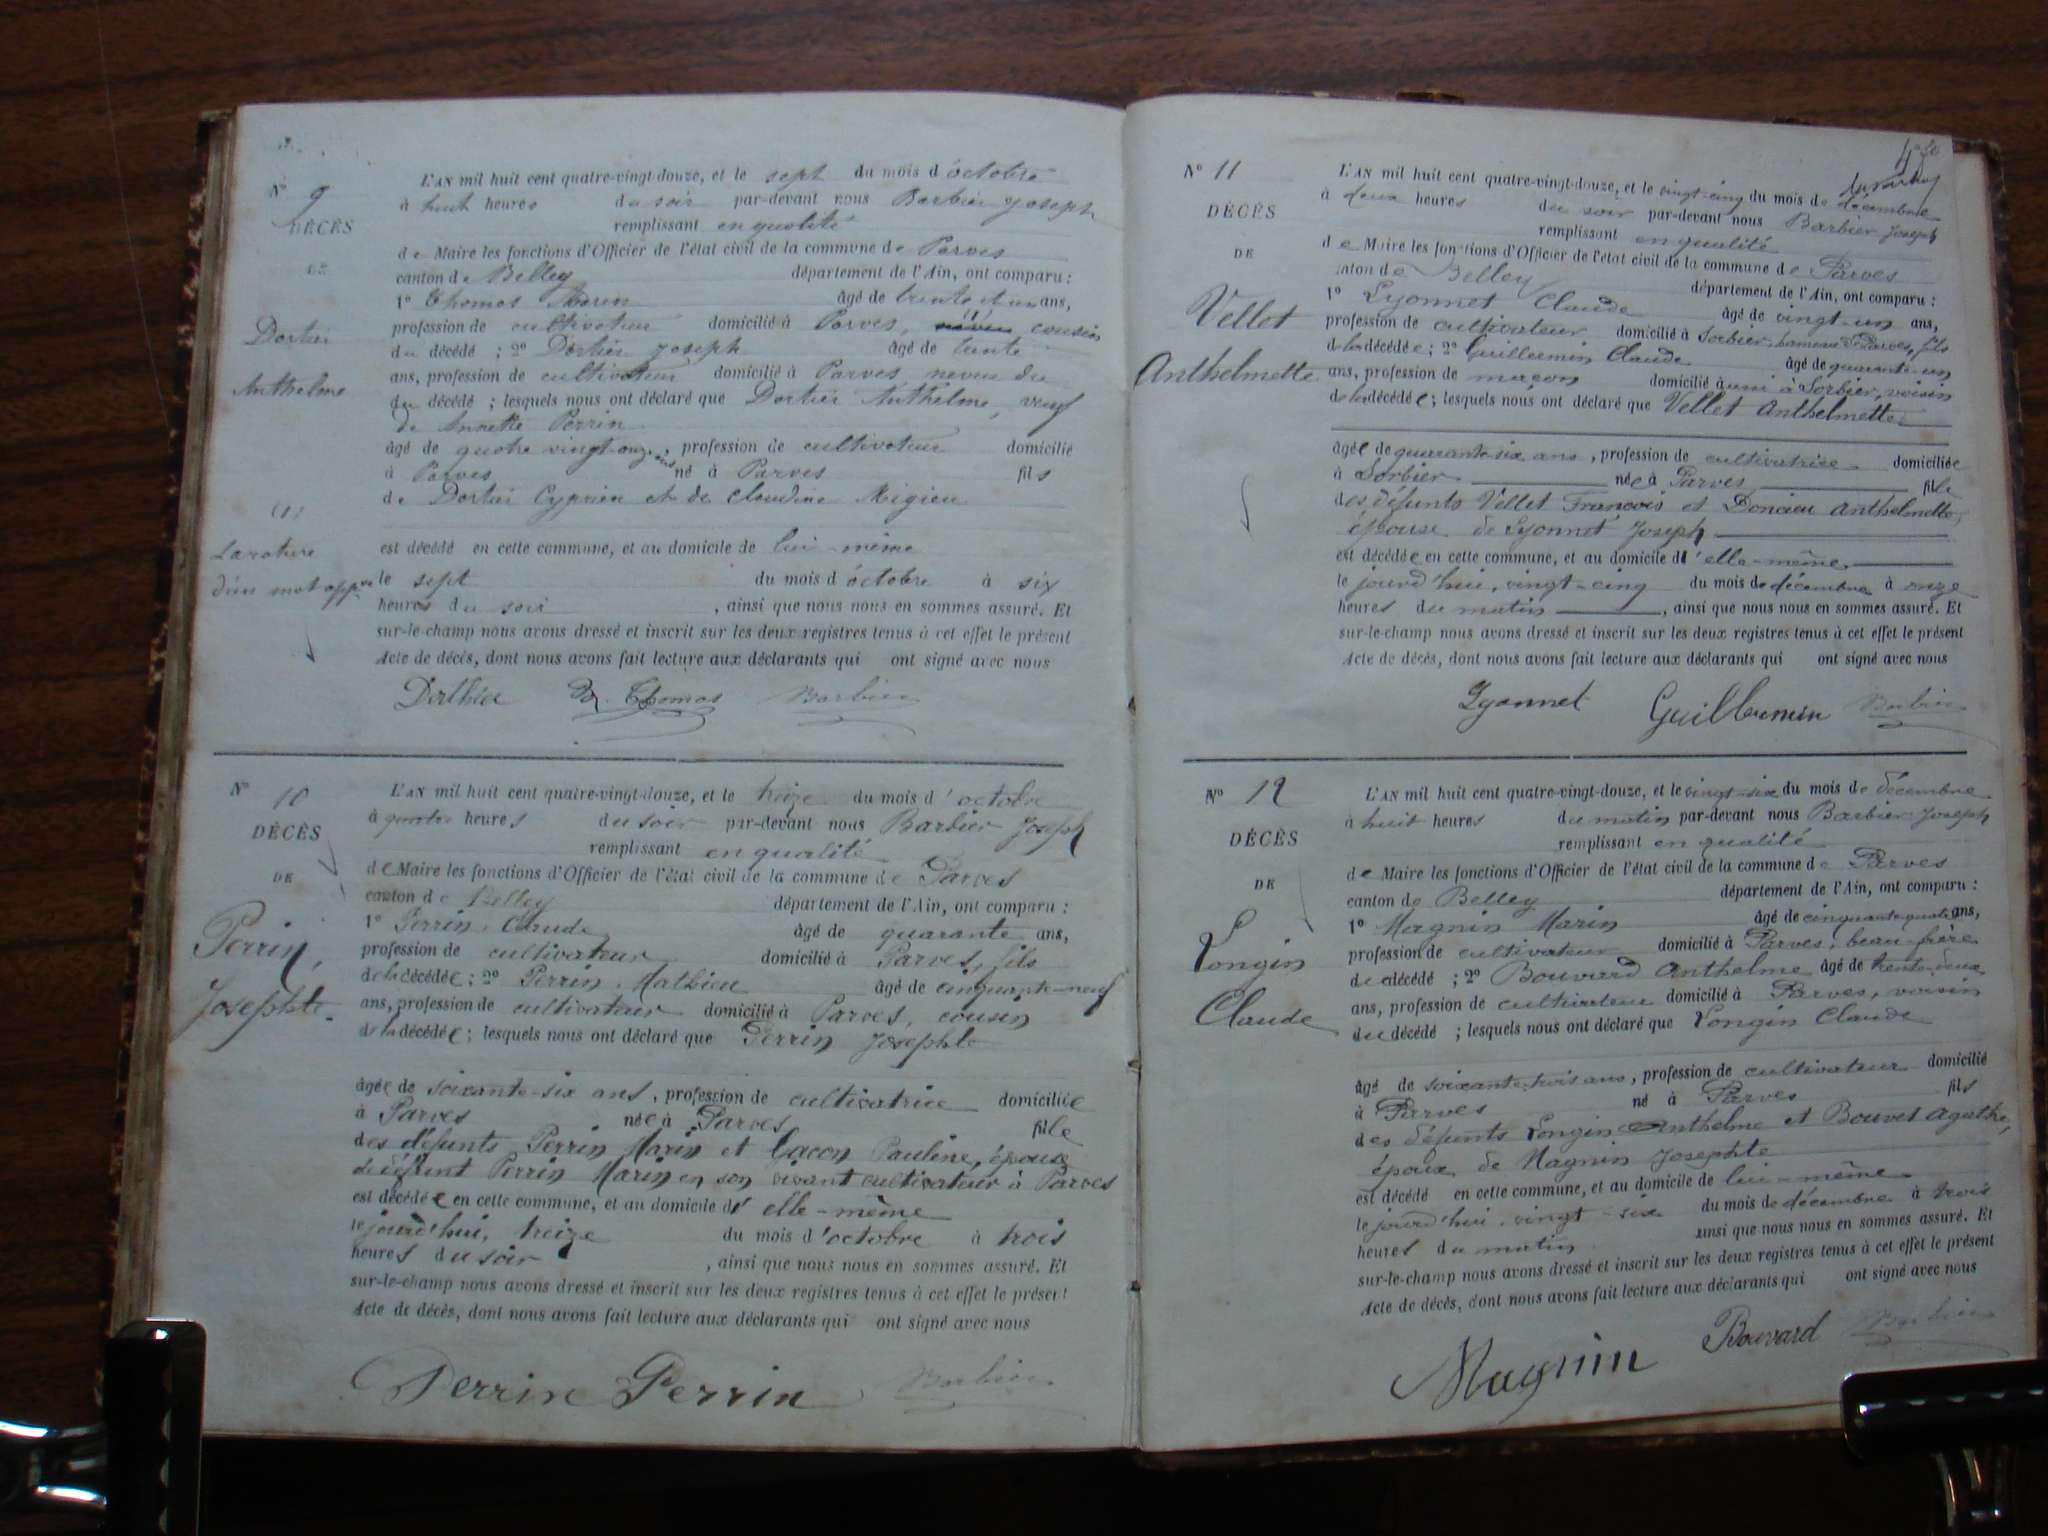 N° 9
DÉCÈS
DE
Dortier
Anthelme
(1)
La rature
d'un mot appvée
L'AN mil huit cent quatre-vingt-douze, et le sept du mois d'octobre
à huit heures du soir par-devant nous Barbier Joseph
remplissant en qualité
de Maire les fonctions d'Officier de l'état civil de la commune de Parves
canton de Belley département de l'Ain, ont comparu :
1° Thomas Marin âgé de trente et un ans,
profession de cultivateur domicilié à Parves, cousin
du décédé ; 2° Dortier Joseph âgé de trente
ans, profession de cultivateur domicilié à Parves neveu du
du décédé ; lesquels nous ont déclaré que Dortier Anthelme, veuf
de Annette Perrin
âgé de quatre vingt-onze ans, profession de cultivateur domicilié
à Parves né à Parves fils
de Dortier Cyprien et de Claudine Migieu
est décédé en cette commune, et au domicile de lui-même
le sept du mois d'octobre à six
heures du soir , ainsi que nous nous en sommes assuré. Et
sur-le-champ nous avons dressé et inscrit sur les deux registres tenus à cet effet le présent
Acte de décès, dont nous avons fait lecture aux déclarants qui ont signé avec nous
Thomas Barbier
N° 10
DÉCÈS
DE
Perrin,
Josephte
L'AN mil huit cent quatre-vingt-douze, et le treize du mois d'octobre
à quatre heures du soir par-devant nous Barbier Joseph
remplissant en qualité
de Maire les fonctions d'Officier de l'état civil de la commune de Parves
canton de Belley département de l'Ain, ont comparu :
1° Perrin Claude âgé de quarante ans,
profession de cultivateur domicilié à Parves, fils
de la décédée ; 2° Perrin Mathieu âgé de cinquante-neuf
ans, profession de cultivateur domicilié à Parves, cousin
de la décédée ; lesquels nous ont déclaré que Perrin Josephte
âgée de soixante-six ans, profession de cultivatrice domiciliée
à Parves née à Parves fille
des défunts Perrin Marin et Pauline, épouse
de défunt Perrin Marin en son vivant cultivateur à Parves
est décédée en cette commune, et au domicile d'elle-même
le jourd'hui, treize du mois d'octobre à trois
heures du soir , ainsi que nous nous en sommes assuré. Et
sur-le-champ nous avons dressé et inscrit sur les deux registres tenus à cet effet le présent
Acte de décès, dont nous avons fait lecture aux déclarants qui ont signé avec nous
Perrin Perrin Barbier
N° 11
DÉCÈS
DE
Vellet
Anthelmette
L'AN mil huit cent quatre-vingt-douze, et le vingt-cinq du mois de décembre
à deux heures du soir par-devant nous Barbier Joseph
remplissant en qualité
de Maire les fonctions d'Officier de l'état civil de la commune de Parves
canton de Belley département de l'Ain, ont comparu :
1° Lyonnet Claude âgé de vingt-un ans,
profession de cultivateur domicilié à Sorbier, hameau de Parves, fils
de la décédée ; 2° Guillermin Claude âgé de quarante-un
ans, profession de maçon domicilié aussi à Sorbier, voisin
de la décédée ; lesquels nous ont déclaré que Vellet Anthelmette
âgée de quarante-six ans, profession de cultivatrice domiciliée
à Sorbier née à Parves fille
des défunts Vellet François et Doncieu Anthelmette,
épouse de Lyonnet Joseph
est décédée en cette commune, et au domicile d'elle-même
le jourd'hui, vingt-cinq du mois de décembre à onze
heures du matin , ainsi que nous nous en sommes assuré. Et
sur-le-champ nous avons dressé et inscrit sur les deux registres tenus à cet effet le présent
Acte de décès, dont nous avons fait lecture aux déclarants qui ont signé avec nous
Lyonnet Guillermin Barbier
N° 12
DÉCÈS
DE
Longin
Claude
L'AN mil huit cent quatre-vingt-douze, et le vingt-six du mois de décembre
à huit heures du matin par-devant nous Barbier Joseph
remplissant en qualité
de Maire les fonctions d'Officier de l'état civil de la commune de Parves
canton de Belley département de l'Ain, ont comparu :
1° Magnin Marin âgé de cinquante-quatre ans,
profession de cultivateur domicilié à Parves, beau-frère
du décédé ; 2° Bouvard Anthelme âgé de trente-deux
ans, profession de cultivateur domicilié à Parves, voisin
du décédé ; lesquels nous ont déclaré que Longin Claude
âgé de soixante-trois ans, profession de cultivateur domicilié
à Parves né à Parves fils
des défunts Longin Anthelme et Bouvet Agathe,
époux de Magnin Josephte
est décédé en cette commune, et au domicile de lui-même
le jourd'hui, vingt-six du mois de décembre à trois
heures du matin ainsi que nous nous en sommes assuré. Et
sur-le-champ nous avons dressé et inscrit sur les deux registres tenus à cet effet le présent
Acte de décès, dont nous avons fait lecture aux déclarants qui ont signé avec nous
Magnin Bouvard Barbier